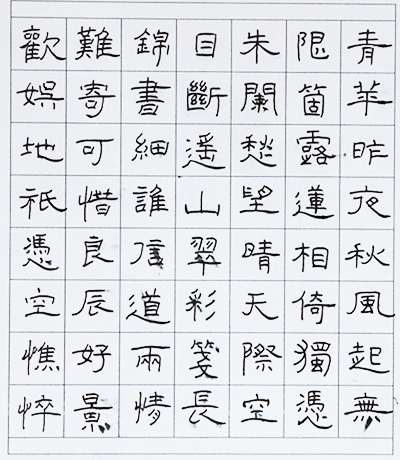 青苹昨夜秋風起無
限箇露蓮相倚獨憑
朱闌愁望晴天際空
目斷遙山翠彩箋長
錦書細誰信道兩情
難寄可惜良辰好景
歡娛地祇憑空憔悴